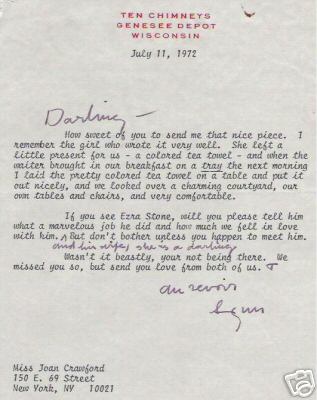 TEN CHIMNEYS
GENESEE DEPOT
WISCONSIN
July 11, 1972
Darling —
How sweet of you to send me that nice piece. I
remember the girl who wrote it very well. She left a
little present for us - a colored tea towel - and when the
waiter brought in our breakfast on a tray the next morning
I laid the pretty colored tea towel on a table and put it
out nicely, and we looked over a charming courtyard, our
own tables and chairs, and very comfortable.
If you see Ezra Stone, will you please tell him
what a marvelous job he did and how much we fell in love
with him. But don't bother unless you happen to meet him.
and his wife, she is a darling
Wasn't it beastly, your not being there. We
missed you so, but send you love from both of us.
au revoir
Lynn
Miss Joan Crawford
150 E. 69 Street
New York, NY 10021